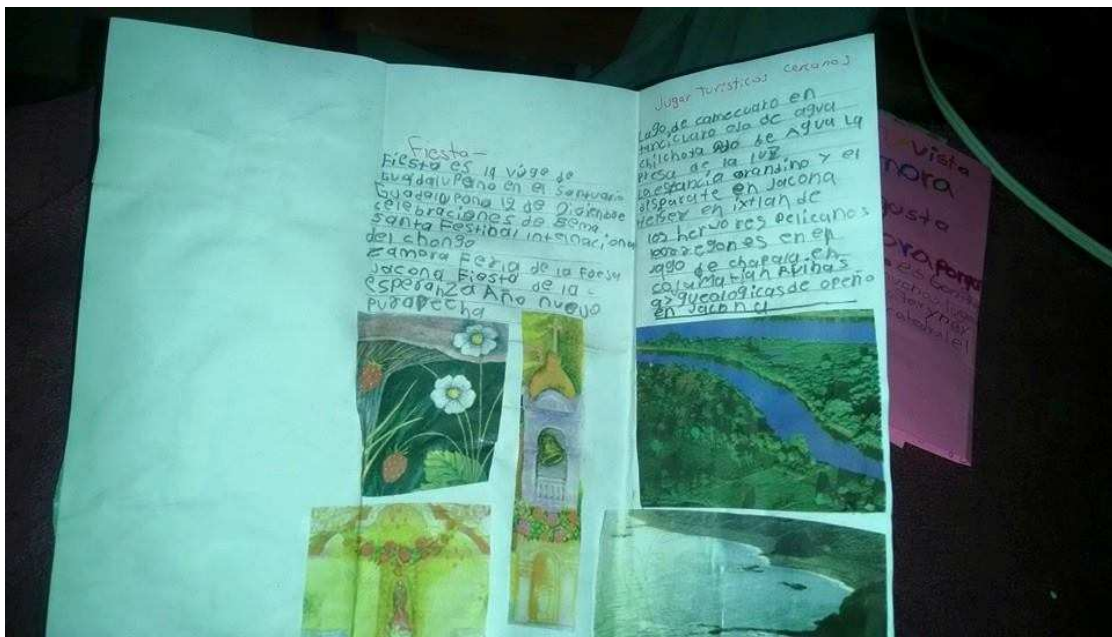 Fiesta-
Fiesta es la vúge de
Guadalupano en el Santuario
Guadalupano 12 de Diciembre
celebraciones de Sema
Santa Festibal internaciona
del chongo
Zamora Feria de la Fresa
Jacona Fiesta de la
esperanza Año nuevo
purapecha
Jugar Turisticos cercanos
Lago, de camecuaro en
tancicuaro ojo de agua
chilchota ojo de Agua La
Presa de la luz
la estancia orandino y el
disparate en Jacona
Jeiser en ixtlan de
los hervores pelicanos
en el
lago de chapala en
columatlan
de opeño
en Jacona
Vista
mora
gusta
ora porque